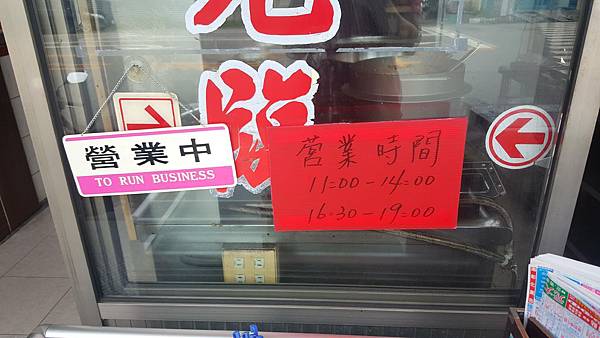 營業中
TO RUN BUSINESS
營業時間
11:00-14:00
16:30-19:00